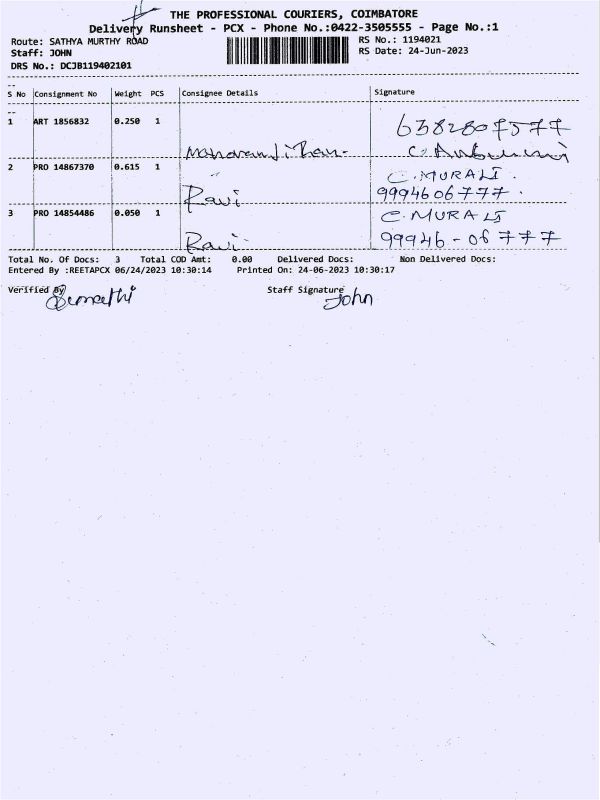 THE PROFESSIONAL COURIERS, COIMBATORE
Delivery Runsheet - PCX - Phone No.:0422-3505555 - Page No.:1
Route: SATHYA MURTHY ROAD
RS No.: 1194021
Staff: JOHN
RS Date: 24-Jun-2023
DRS No.: DCJB119402101
S No Consignment No Weight PCS Consignee Details Signature
1 ART 1856832 0.250 1
6382807577
C.
2 PRO 14867370 0.615 1
C.MURALI.
Ravi 9994606777.
3 PRO 14854486 0.050 1
C.MURALI
Ravi. 99946-06777
Total No. Of Docs: 3 Total COD Amt: 0.00 Delivered Docs: Non Delivered Docs:
Entered By :REETAPCX 06/24/2023 10:30:14 Printed On: 24-06-2023 10:30:17
Verified By Staff Signature
John